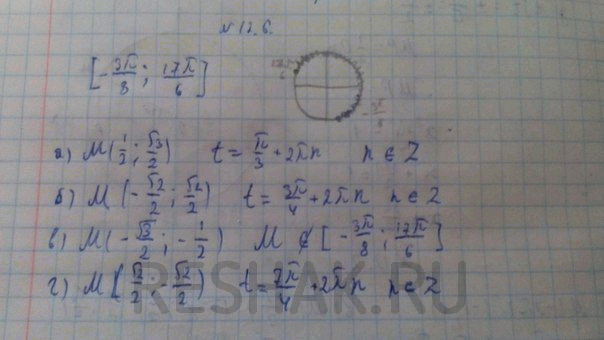 N 13.6.
[-3π/8; 17π/6]
17π/6
-3π/8
а) M(1/2; √3/2) t = π/3 + 2πn n ∈ Z
б) M(-√2/2; √2/2) t = 3π/4 + 2πn n ∈ Z
в) M(-√3/2; -1/2) M ∉ [-3π/8; 17π/6]
г) M(√2/2; -√2/2) t = 7π/4 + 2πn n ∈ Z
RESHAK.RU